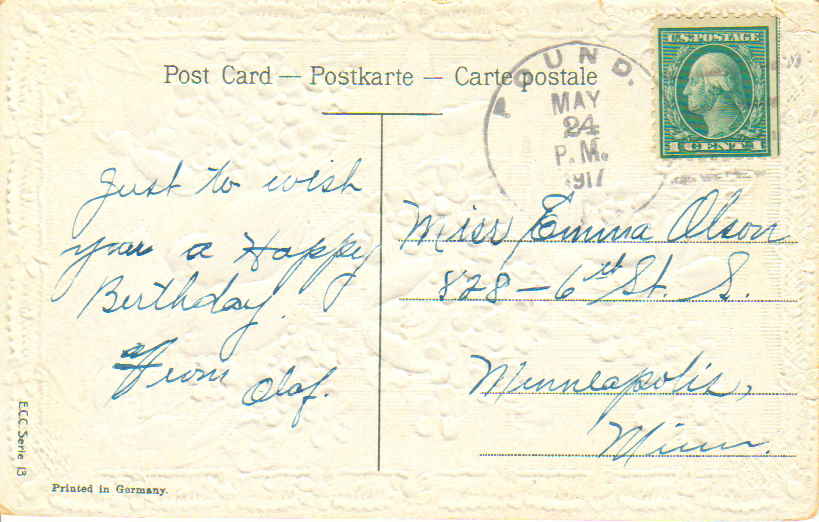 Post Card — Postkarte — Carte postale
POUND.
MAY
24
P.M.
1917
U.S. POSTAGE
1 CENT 1
Just to wish
you a Happy
Birthday.
From Olaf.
Miss Emma Olson
828 – 6th St. S.
Minneapolis,
Minn.
E.C.C. Serie 13
Printed in Germany.